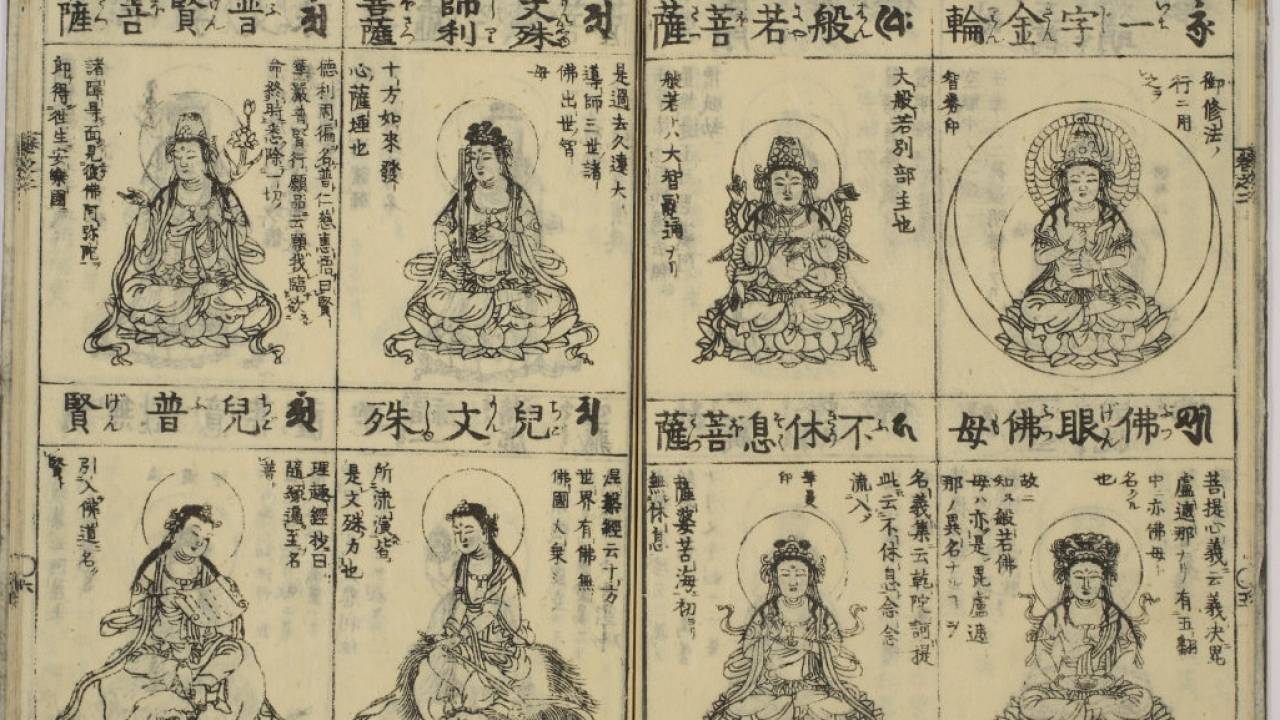 一字金輪
御修法ノ
行ニ用
智拳印
般若菩薩
大般若別部主也
佛眼佛母
菩提心義云義決毘
盧遮那ナリ有五翻
中ニ亦佛母
名クル
也
故ニ
知ヌ般若佛
母ハ亦是毘盧遮
那ノ異名ナル
不休息菩薩
名義集云乾陀訶提
此云不休息念念
流入
薩婆若海
無休息
文殊師利菩薩
是過去久遠大
導師三世諸
佛出世智
母
十方如來發
心薩埵也
普賢菩薩
德利周徧名普仁慈惠悟曰賢
華嚴普賢行願品云願我臨欲
命終時盡除一切
諸障碍面見彼佛阿弥陀
即得往生安樂國
兒文殊
涅槃經云十方
世界有佛無
佛國人衆
所流演皆
是文殊力也
兒普賢
理趣經抄曰
引入佛道名
賢